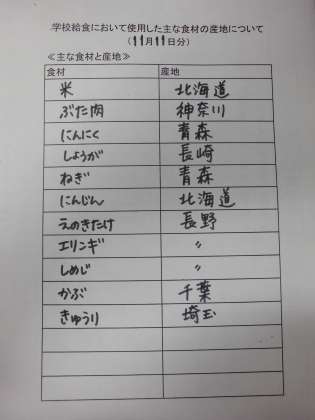 学校給食において使用した主な食材の産地について
(11月11日分)
≪主な食材と産地≫
食材 産地
米 北海道
ぶた肉 神奈川
にんにく 青森
しょうが 長崎
ねぎ 青森
にんじん 北海道
えのきたけ 長野
エリンギ 〃
しめじ 〃
かぶ 千葉
きゅうり 埼玉